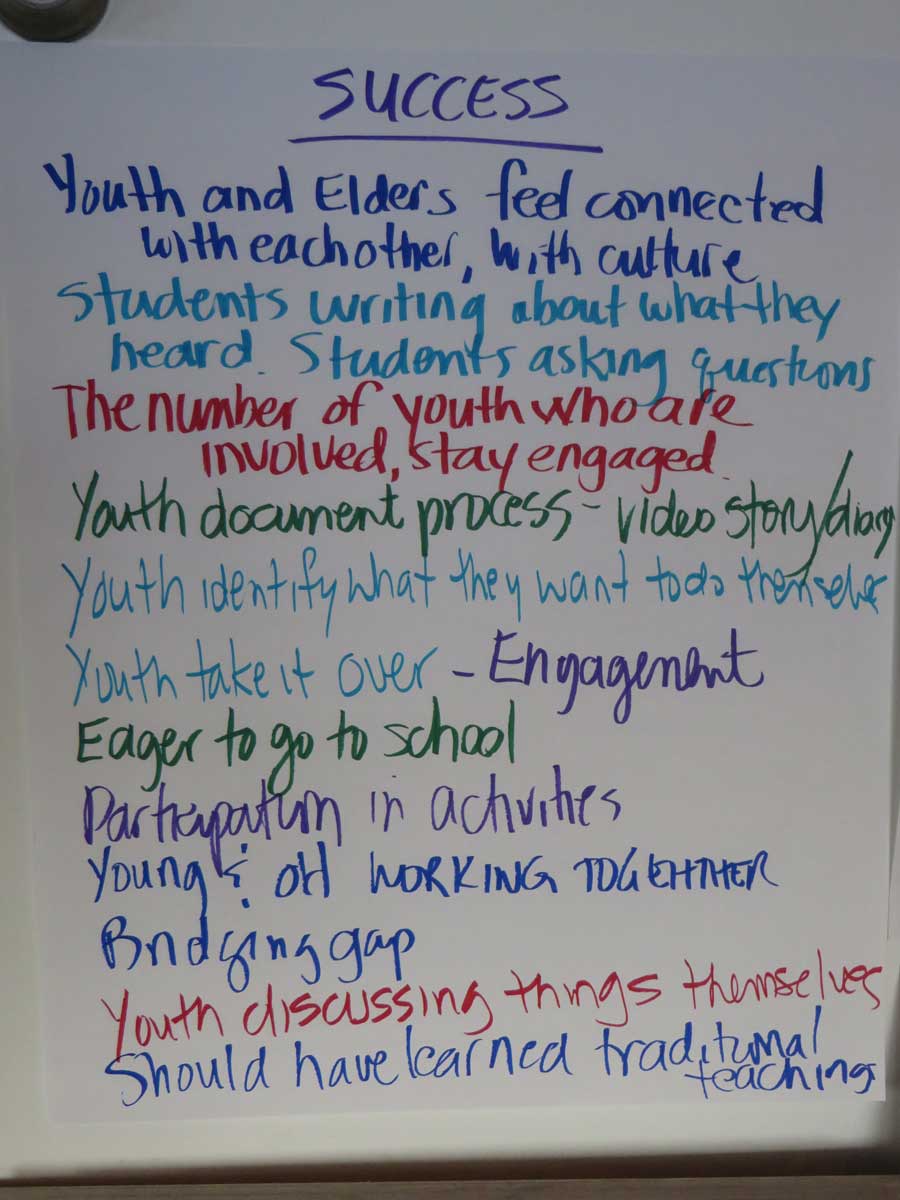 SUCCESS
Youth and Elders feel connected
with each other, with culture
Students writing about what they
heard. Students asking questions
The number of youth who are
involved, stay engaged.
Youth document process - video story/diary
Youth identify what they want to do themselves
Youth take it over - Engagement
Eager to go to school
Participation in activities
Young & old WORKING TOGETHER
Bridging gap
Youth discussing things themselves
Should have learned traditional
teaching